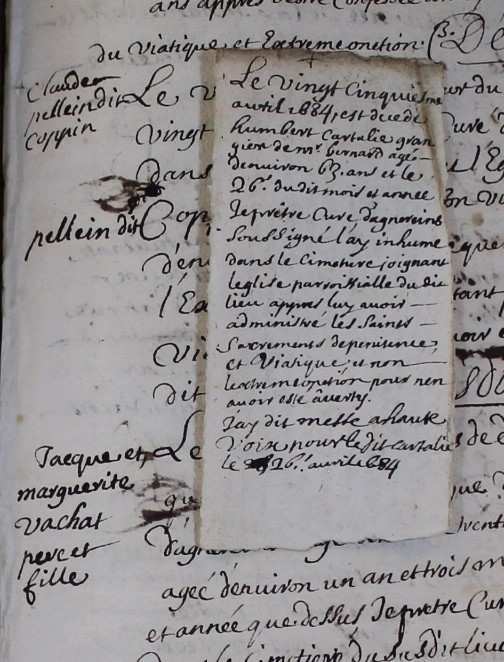 ans appres
du Viatique et Extremeonction. (3. De
Claude
pellein dit
Coppin
Le V
vingt
dans
pellein dit
Cop
d'enu
l'Eg
Vi
dit
Le Vingt Cinquiesme
avril 1684, est decedé
humbert Cartalie gran
giere de mr. bernard agé
denuiron 63. ans et le
26e. du dit mois et année
Je prêtre Curé d'agnereins
Soussigné l'ay inhumé
dans le Cimetiere joignant
l'eglise parroissialle du dit
lieu appres luy avoir
administré les Saints
Sacrements de penitence
et Viatique, et non
l'extremeonction pour n'en
avoir esté averty.
J'ay dit messe a haute
Voix pour le dit Cartalie
le 26e. avril 1684
Jacque et
marguerite
Vachat
pere et
fille
Le
qu
d'agn
ageé d'enuiron un an et trois m
et année que dessus Je prêtre Cur
du Susdit lieu